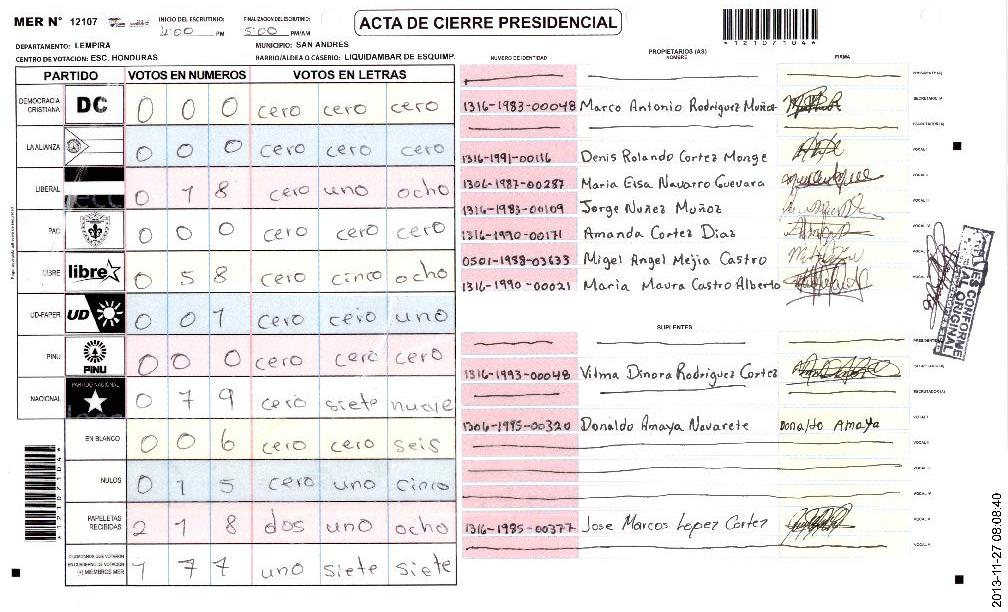 MER N° 12107
INICIO DEL ESCRUTINIO: 4:00 PM
FINALIZACION DEL ESCRUTINIO: 5:00 PM/AM
ACTA DE CIERRE PRESIDENCIAL
*12107104*
DEPARTAMENTO: LEMPIRA
MUNICIPIO: SAN ANDRES
CENTRO DE VOTACION: ESC. HONDURAS
BARRIO/ALDEA O CASERIO: LIQUIDAMBAR DE ESQUIMP.
PARTIDO VOTOS EN NUMEROS VOTOS EN LETRAS
DEMOCRACIA CRISTIANA DC 0 0 0 cero cero cero
LA ALIANZA 0 0 0 cero cero cero
LIBERAL 0 1 8 cero uno ocho
PAC 0 0 0 cero cero cero
LIBRE libre 0 5 8 cero cinco ocho
UD-FAPER UD 0 0 1 cero cero uno
PINU PINU 0 0 0 cero cero cero
NACIONAL PARTIDO NACIONAL 0 7 9 cero siete nueve
EN BLANCO 0 0 6 cero cero seis
NULOS 0 1 5 cero uno cinco
PAPELETAS RECIBIDAS 2 1 8 dos uno ocho
CIUDADANOS QUE VOTARON EN CUADERNO DE VOTACION (+) MIEMBROS MER 1 7 7 uno siete siete
*12107104*
PROPIETARIOS (AS)
NUMERO DE IDENTIDAD NOMBRE FIRMA
PRESIDENTE (A)
1316-1983-00048 Marco Antonio Rodriguez Muñoz SECRETARIO (A)
ESCRUTADOR (A)
1316-1991-00116 Denis Rolando Cortez Monge VOCAL I
1306-1987-00287 Maria Elsa Navarro Guevara VOCAL II
1316-1983-00109 Jorge Nuñez Muñoz VOCAL III
1316-1990-00171 Amanda Cortez Diaz VOCAL IV
0501-1988-03633 Migel Angel Mejia Castro VOCAL V
1316-1990-00021 Maria Maura Castro Alberto
SUPLENTES
PRESIDENTE (A)
1316-1993-00048 Vilma Dinora Rodriguez Cortez SECRETARIO (A)
ESCRUTADOR (A)
1306-1985-00320 Donaldo Amaya Navarete Donaldo Amaya VOCAL I
VOCAL II
VOCAL III
VOCAL IV
1316-1985-00377 Jose Marcos Lopez Cortez VOCAL V
ES CONFORME AL ORIGINAL
2013-11-27 08:08:40